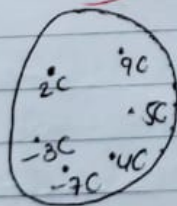 9C
2C
5C
-3C
4C
-7C